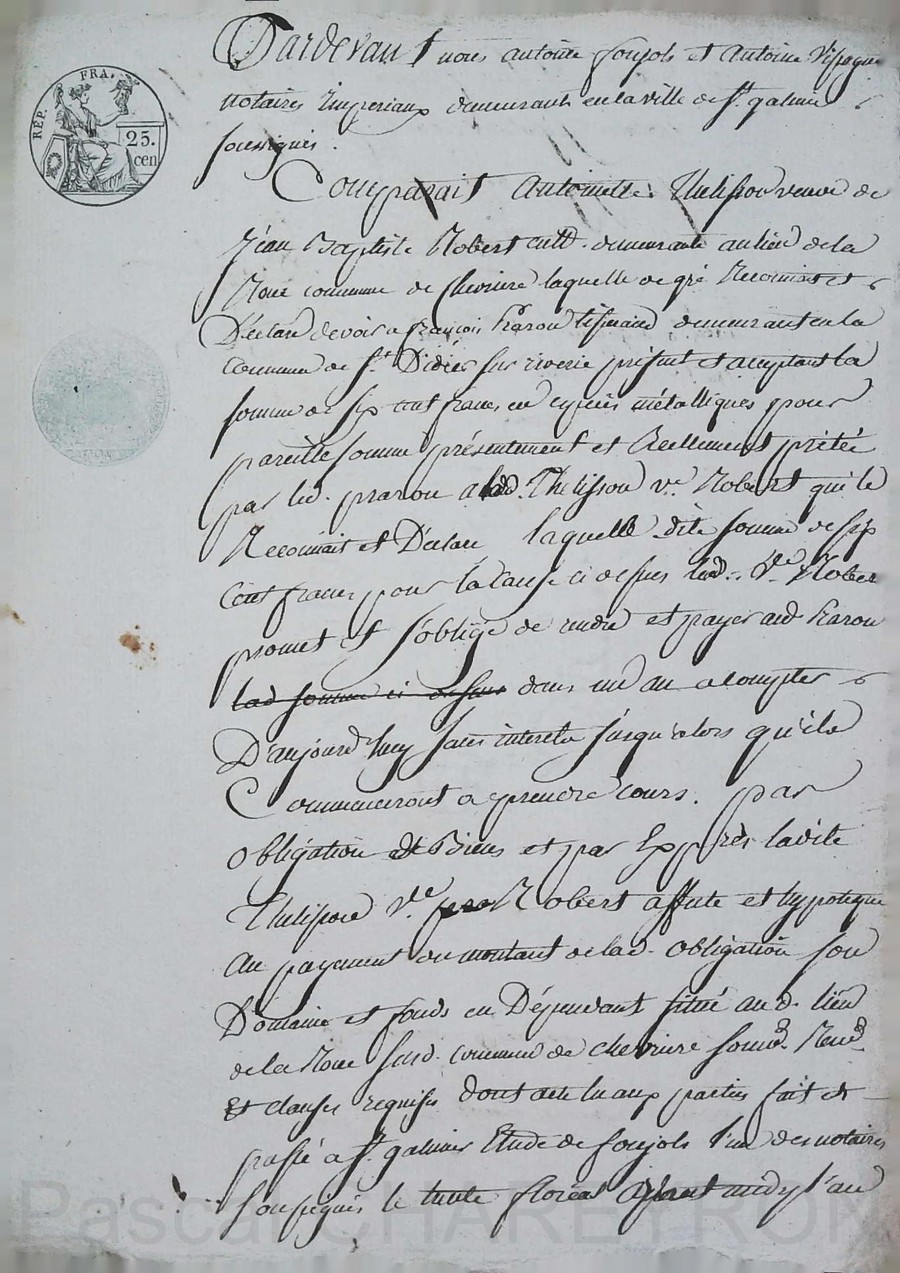 RÉP. FRA.
25.
cen
Pardevant nous antoine soujols et Antoine
notaires Imperiaux demeurants en la ville de St. galmier
soussignés.
Comparait Antoinette Thelisson veuve de
Jean Baptiste Robert cultr. demeurante au lieu de la
Roue commune de Chevriere laquelle de gré Reconnait et
Déclare devoir a françois demeurant en la
Commune de St. Didier sur riverie présent et acceptant la
somme de sept cent francs en espèces métalliques pour
pareille somme présentement et Reellement prétée
par led. praron a lad. Thelisson ve. Robert qui le
Reconnait et Déclare laquelle dite somme de sept
Cent francs pour la cause ci dessus lad. Ve. Robert
promet et s'oblige de rendre et payer aud praron
lad somme ci dessus dans un an a compter
D'aujourd'huy sans interets jusqu'alors qu'ils
Commenceront a prendre cours. par
obligation de Biens et par Exprès ladite
Thelisson Ve. Robert affecte et hypoteque
au payement du montant de lad. obligation son
Domaine et fonds en Dépendant situé aud. lieu
de la Roue susd. commune de chevriere
Et clauses requises dont acte lu aux parties fait et
passé a St. galmier Etude de soujols l'un des notaires
soussignés le trente floréal avant midy l'an
Pascal CHAREYRON